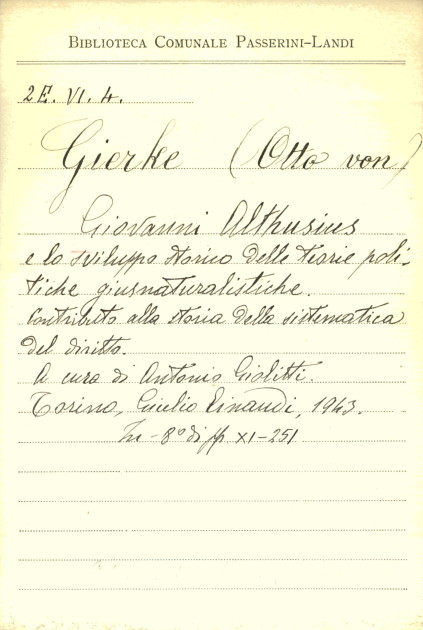 BIBLIOTECA COMUNALE PASSERINI-LANDI
2E. VI. 4.
Gierke (Otto von)
Giovanni Althusius
e lo sviluppo storico delle teorie poli-
tiche giusnaturalistiche.
Contributo alla storia della sistematica
del diritto.
A cura di Antonio Giolitti.
Torino, Giulio Einaudi, 1943.
In-8° di pp XI-251